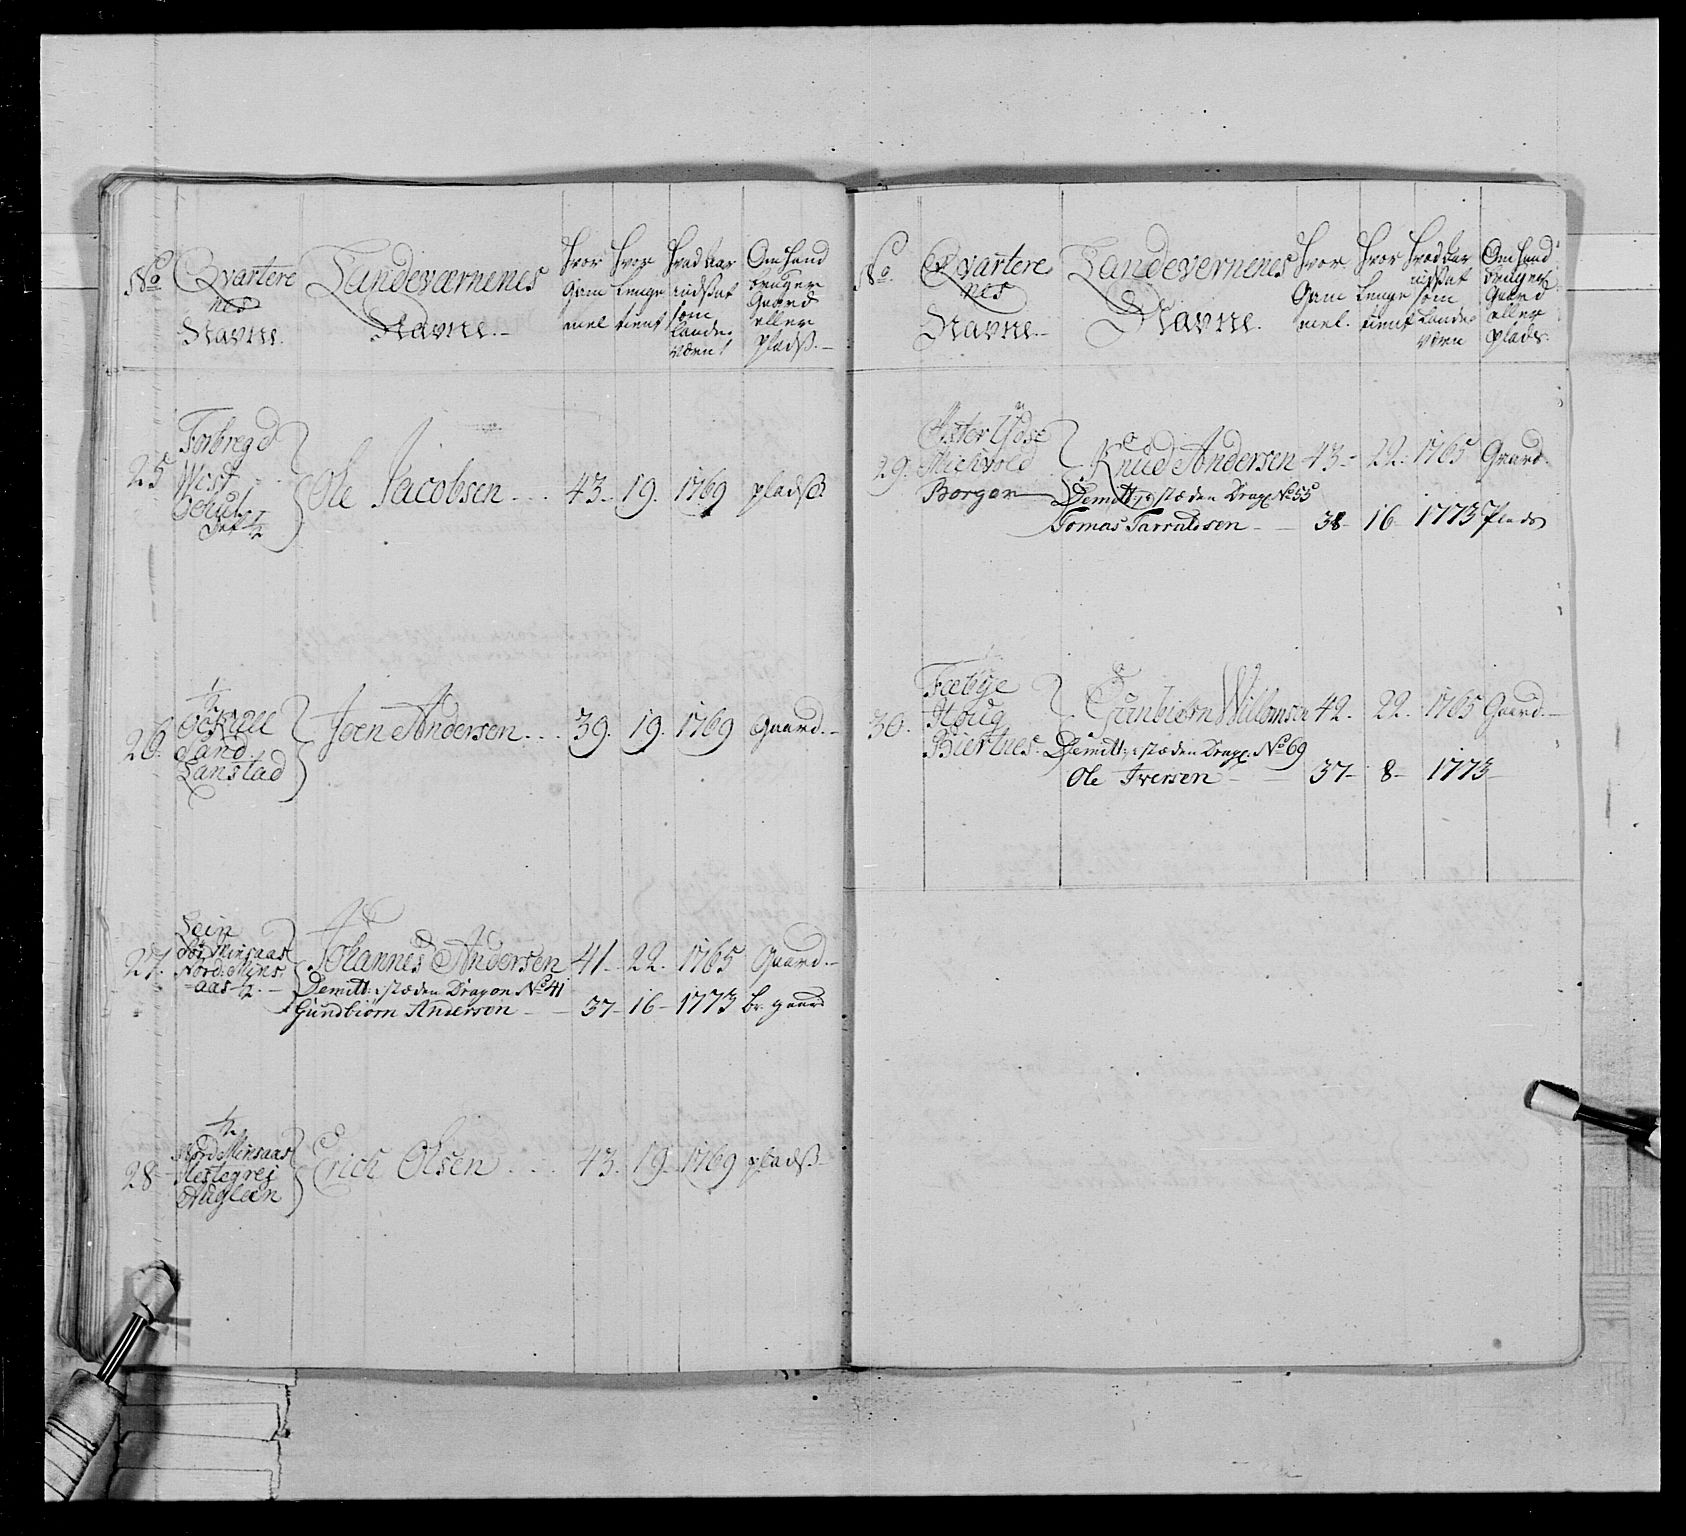 No
Qvartere
nes
Navne.
Landeværnenes
Navne.
Hvor
Gam
mel
Hvor
Lenge
tient
Hvad Aar
udsat
som
Lande-
værn
Om Hand
bruger
Gaard
eller
pladß.
25
Forbregd
West
1/2
Ole Jacobsen
43. 19. 1769 pladß.
26.
1/2
Sand
Lanstad
Joen Andersen
39. 19. 1769 Gaard.
27.
Lein
Sör Minsaas
Nord. Mins
aas 1/2
Johannes Andersen 41. 22. 1765 Gaard.
Demitt: istæden Dragon No 41
Gundbiørn Andersen 37 16 1773 br. gaard
28
1/2
Nord Minsaas
Hestegrei
Augleen
Erich Olsen
43. 19. 1769 pladß
No
Qvartere
nes
Navne.
Landevernenes
Navne.
Hvor
Gam
mel.
Hvor
Lenge
tient
Hvad Aar
udsat
som
Lande-
værn
Om Hand
bruger
Gaard
eller
plads.
29.
Øster Ydse
Michvold
Borgen
Knud Andersen 43. 22. 1765 Gaard.
Demitt: istæden Drag: No 55
Tomas Tarraldsen 38 16 1773 Plads
30.
Fæbye
Houg
Biertnes.
Gunbiørn Willomsen 42. 22. 1765 Gaard.
Demitt: istæden Drag: No 69
Ole Iversen 37 8 1773